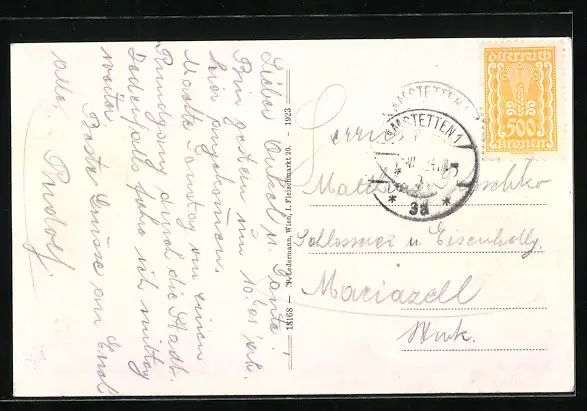 Lieber Onkel u. Tante!
Bin gestern um 10h
hier angekommen.
Machte Sonntag einen
Rundgang durch die Stadt.
Jedenfalls fahre ich mittag
weiter.
Beste Grüsse an Euch
alle, Rudolf
18168 — P. Ledermann, Wien, I. Fleischmarkt 20. — 1923
Österreich
500
Kronen
AMSTETTEN 1
AMSTETTEN 1
* 3a *
Herrn
Schlosserei u. Eisenhdlg.
Mariazell
Stmk.